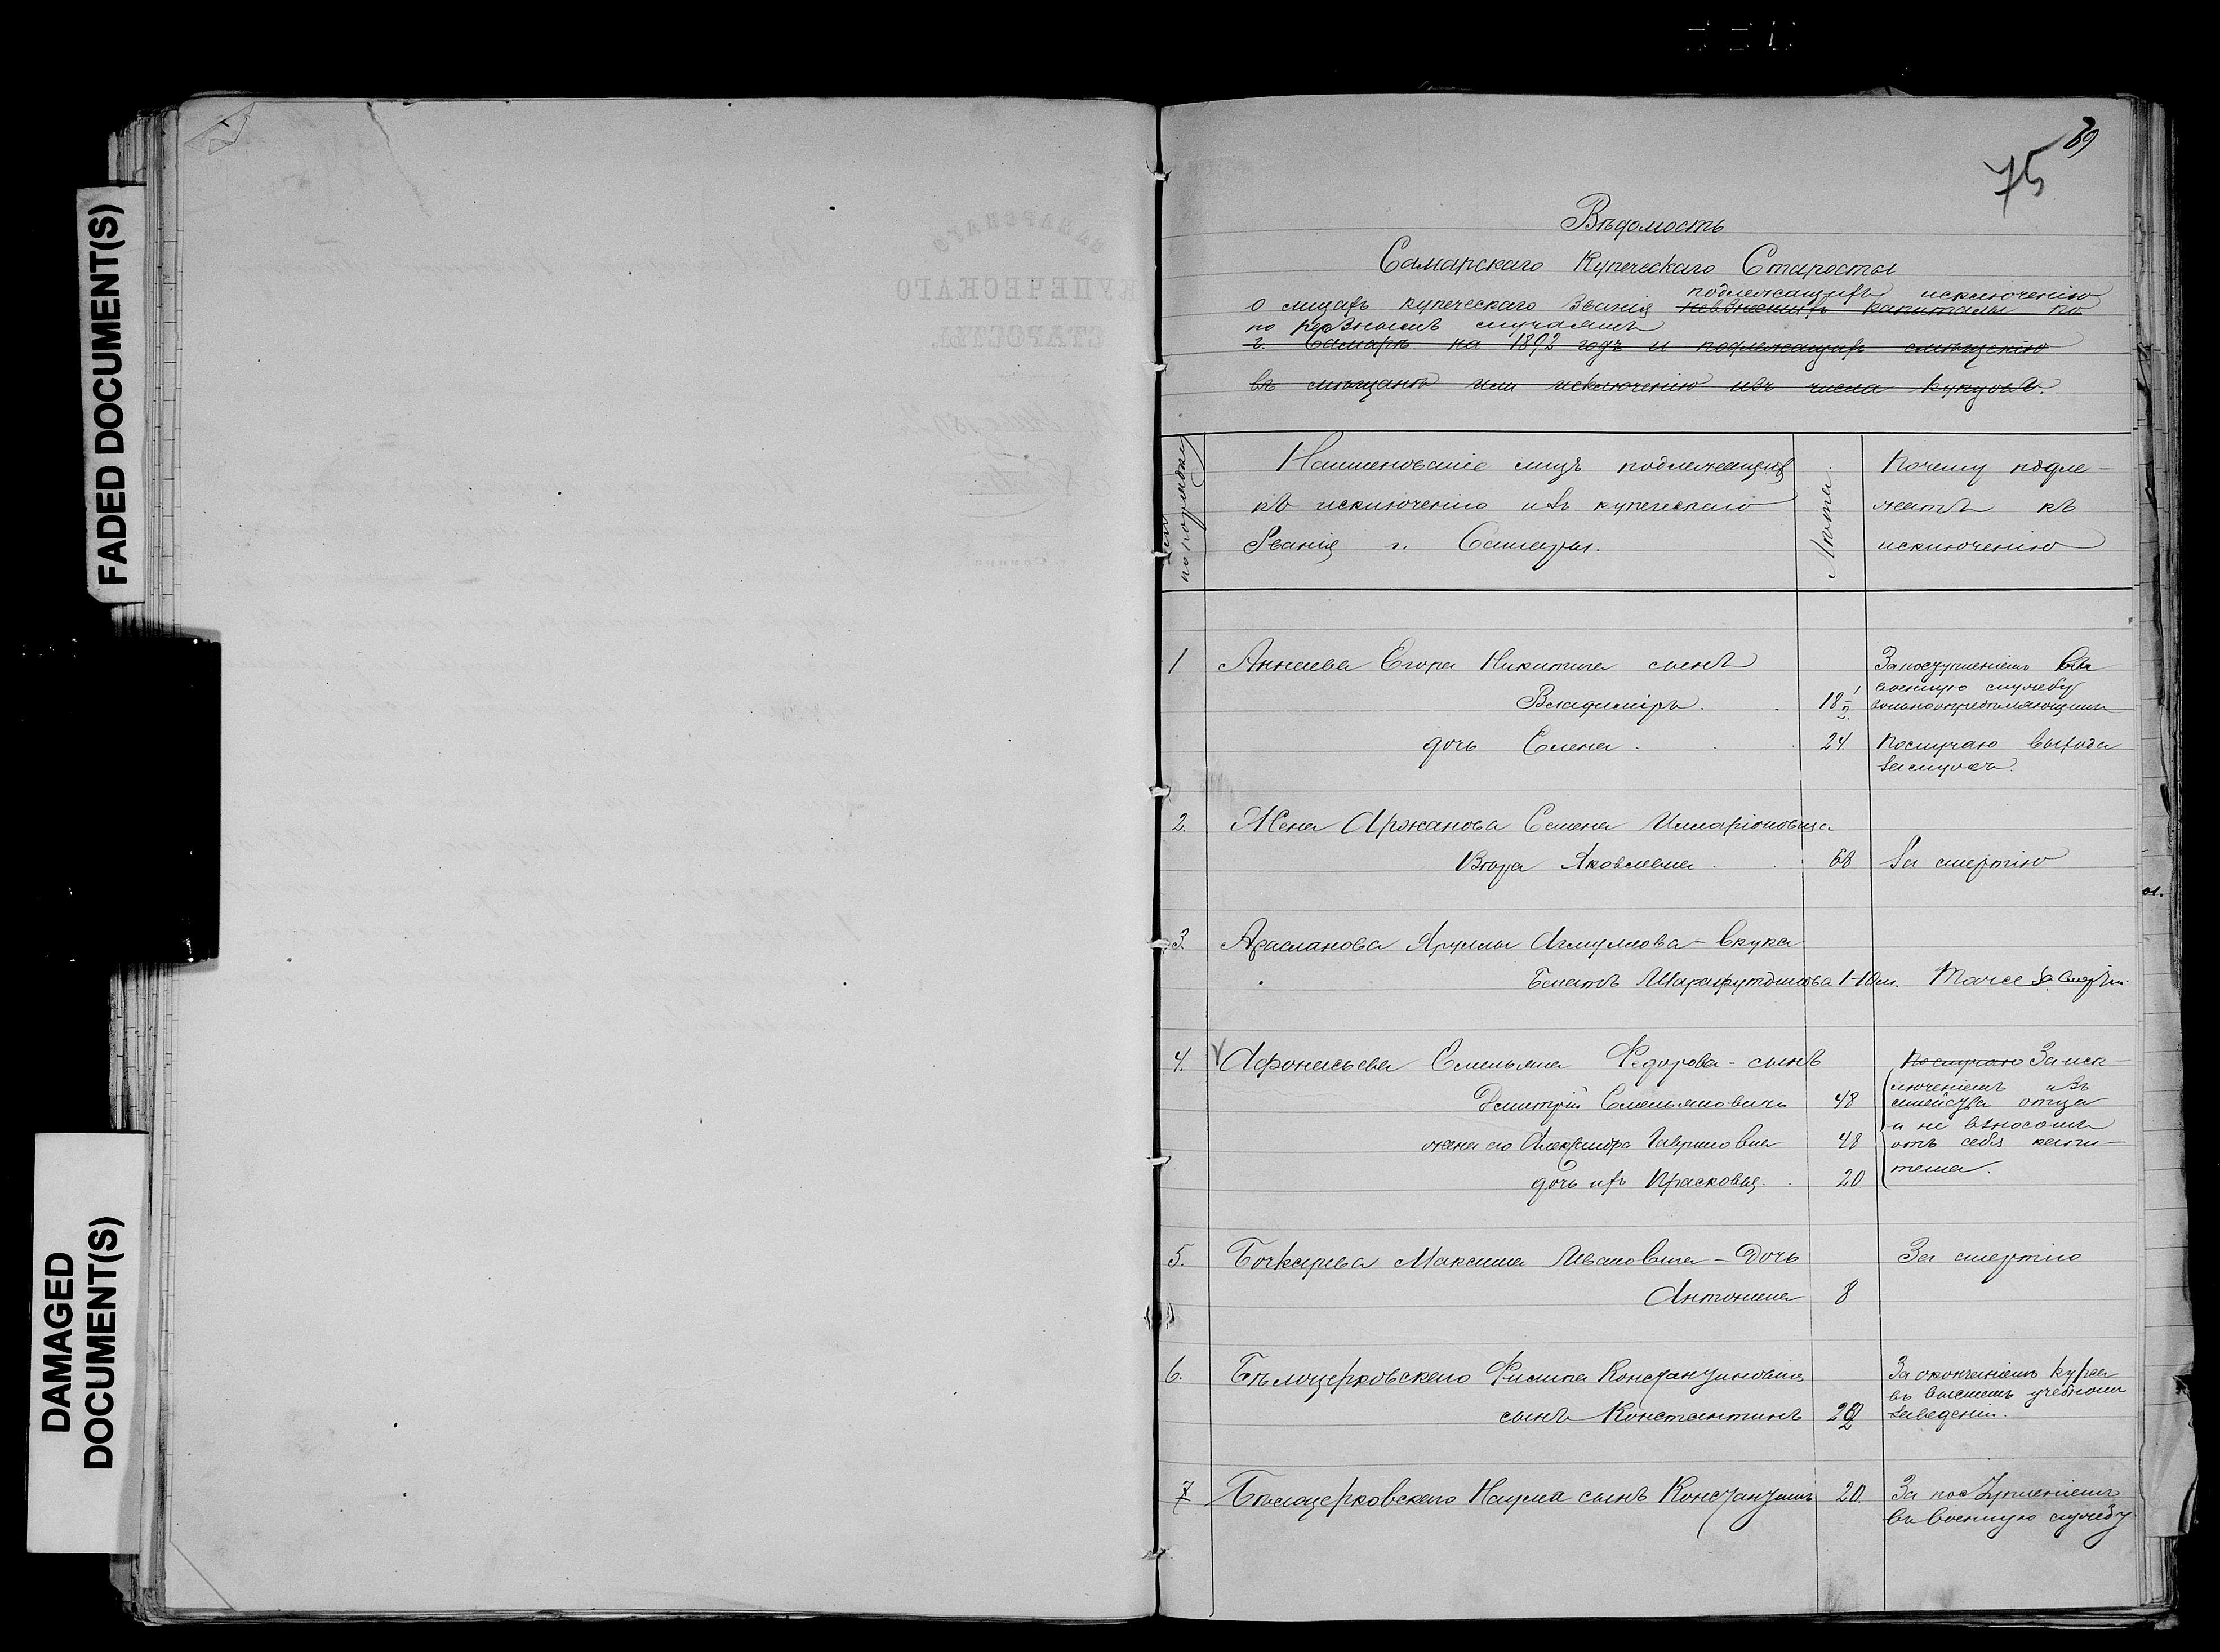 FADED DOCUMENT(S)
DAMAGED
DOCUMENT(S)
САМАРСКАГО
КУПЕЧЕСКАГО
СТАРОСТЫ.
75
Вѣдомость
Самарскаго Купеческаго Старосты
подлежащихъ исключенію
о лицахъ купеческаго званія невзнесшихъ капиталы по
по разнымъ случаямъ
г. Самарѣ на 1892 годъ и подлежащихъ смѣщенію
въ мѣщане или исключенію изъ числа купцовъ.
по порядку
Наименованіе лицъ подлежащихъ
къ исключенію изъ купеческаго
званія г. Самары.
Лѣта
Почему подле-
жатъ къ
исключенію
1 Аннаева Егора Никитича сынъ
Владиміръ. 18 1/2
За поступленіемъ въ
военную службу
вольноопредѣляющимся
дочь Елена 24. По случаю выхода
замужъ.
2. Жена Аржанова Семена Илларіоновича
Вѣра Яковлевна 68 За смертію
3. Арасланова Яруллы Агмуллова - внука
Бматъ Шарафутдинова 1-10 м. Также за смертію
4. Афонасьева Емельяна Ѳедорова - сынъ
Дмитрій Емельяновичъ 48
жена его Александра Гавриловна 48
дочь ихъ Прасковья. 20
По случаю За иск-
люченіемъ изъ
семейства отца
и не взносомъ
отъ себя капи-
тала.
5. Бочкарева Максима Ивановича - Дочь
Антонина 8
За смертію
6. Бѣлоцерковскаго Филипа Константиновича
сынъ Константинъ
За окончаніемъ курса
въ высшемъ учебномъ
заведеніи.
7 Бѣлоцерковскаго Наума сынъ Константинъ 20.
За поступленіемъ
въ военную службу